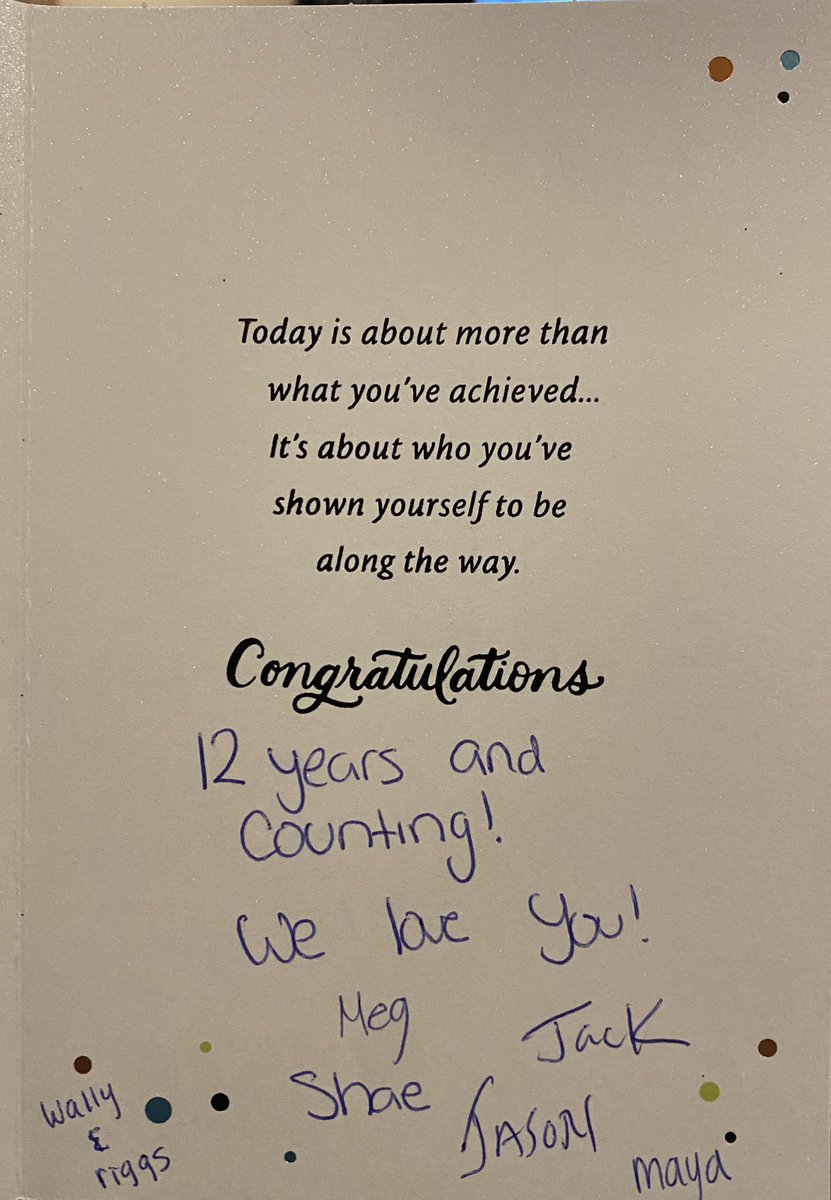 Today is about more than
what you've achieved...
It's about who you've
shown yourself to be
along the way.
Congratulations
12 years and
Counting!
We love You!
Meg
Jack
Shae
JASON
maya
Wally
&
riggs